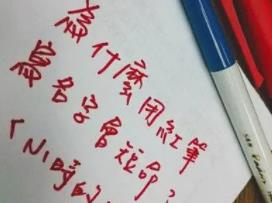 為什麼用紅筆
寫名字會短命?
(小時的